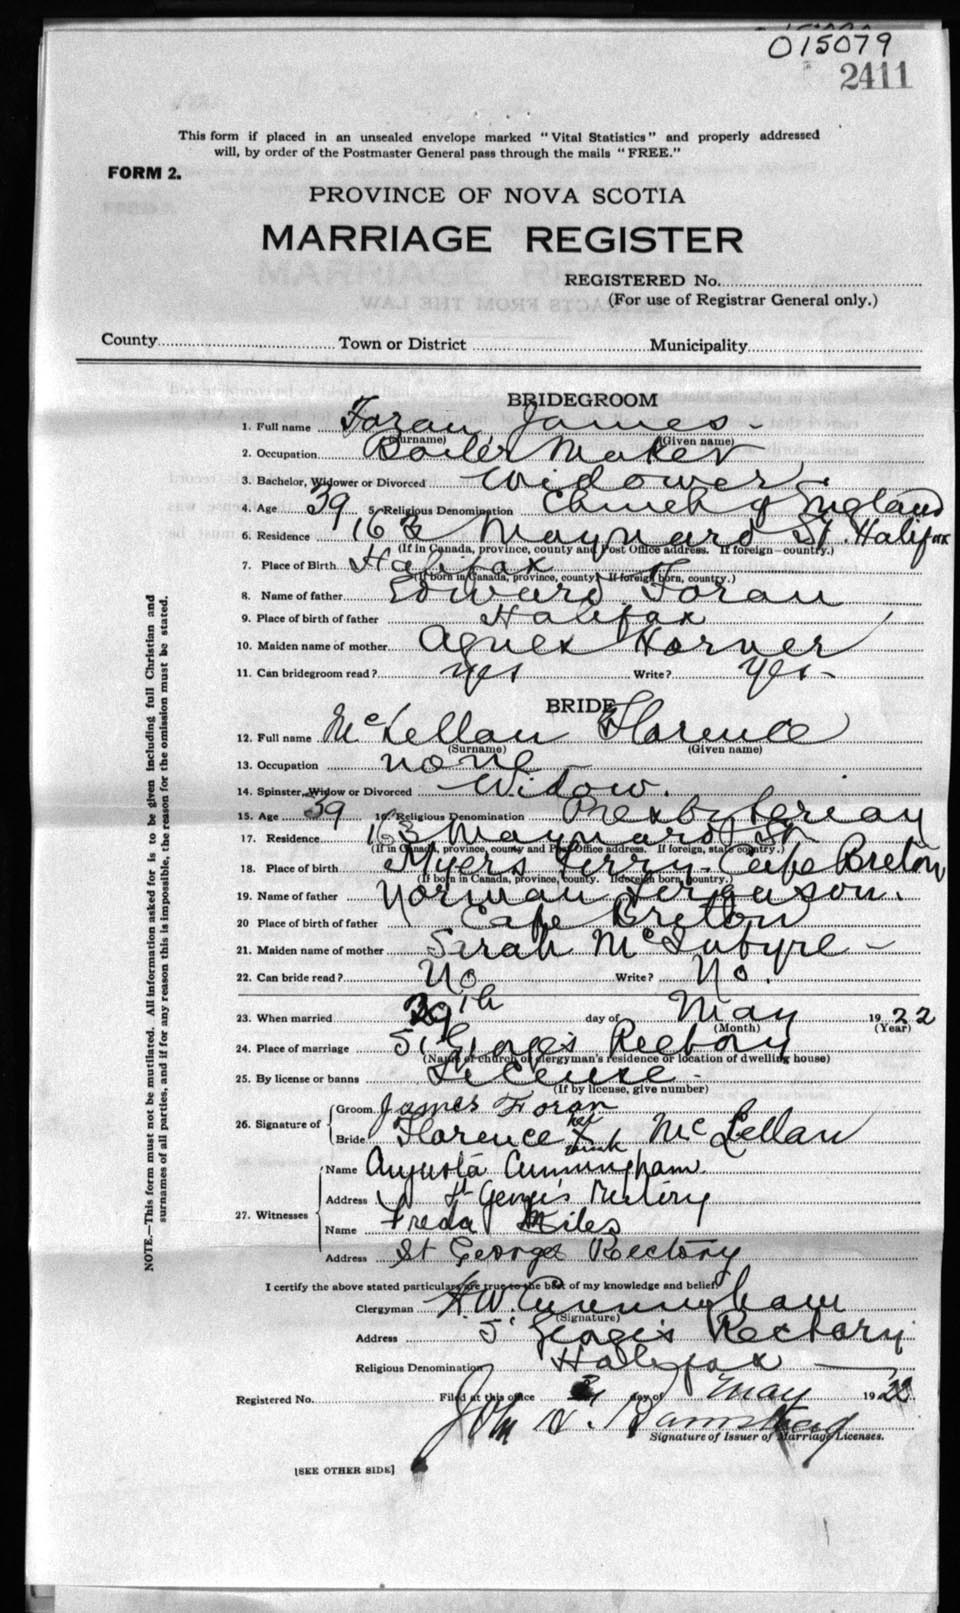 015079
2411
This form if placed in an unsealed envelope marked "Vital Statistics" and properly addressed
will, by order of the Postmaster General pass through the mails "FREE."
FORM 2.
PROVINCE OF NOVA SCOTIA
MARRIAGE REGISTER
REGISTERED No.
(For use of Registrar General only.)
County Town or District Municipality
BRIDEGROOM
1. Full name Foran James -
(Surname) (Given name)
2. Occupation Boiler Maker
3. Bachelor, Widower or Divorced Widower
4. Age 39 5. Religious Denomination Church of England
6. Residence 163 Maynard St. Halifax
(If in Canada, province, county and Post Office address. If foreign—country.)
7. Place of Birth Halifax
(If born in Canada, province, county. If foreign born, country.)
8. Name of father Edward Foran
9. Place of birth of father Halifax
10. Maiden name of mother Agnes Horner
11. Can bridegroom read? Yes Write? Yes -
BRIDE
12. Full name McLellan Florence
(Surname) (Given name)
13. Occupation none
14. Spinster, Widow or Divorced Widow.
15. Age 39 16. Religious Denomination Presbyterian
17. Residence 163 Maynard St
(If in Canada, province, county and Post Office address. If foreign, state country.)
18. Place of birth Myers Ferry. Cape Breton
(If born in Canada, province, county. If foreign born, country.)
19. Name of father Norman Ferguson.
20 Place of birth of father Cape Breton
21. Maiden name of mother Sarah McIntyre -
22. Can bride read? No Write? No.
23. When married 29th day of May 1922
(Month) (Year)
24. Place of marriage St George's Rectory
(Name of church or clergyman's residence or location of dwelling house)
25. By license or banns License -
(If by license, give number)
26. Signature of Groom James Foran
her
Bride Florence X McLellan
mark
27. Witnesses Name Augusta Cunningham.
Address St George's Rectory
Name Freda Miles
Address St Georges Rectory
I certify the above stated particulars are true to the best of my knowledge and belief.
Clergyman H.W. Cunningham
(Signature)
Address St George's Rectory
Religious Denomination Halifax
Registered No. Filed at this office day of May 1922
John
Signature of Issuer of Marriage Licenses.
[SEE OTHER SIDE]
NOTE.—This form must not be mutilated. All information asked for is to be given including full Christian and
surnames of all parties, and if for any reason this is impossible, the reason for the omission must be stated.